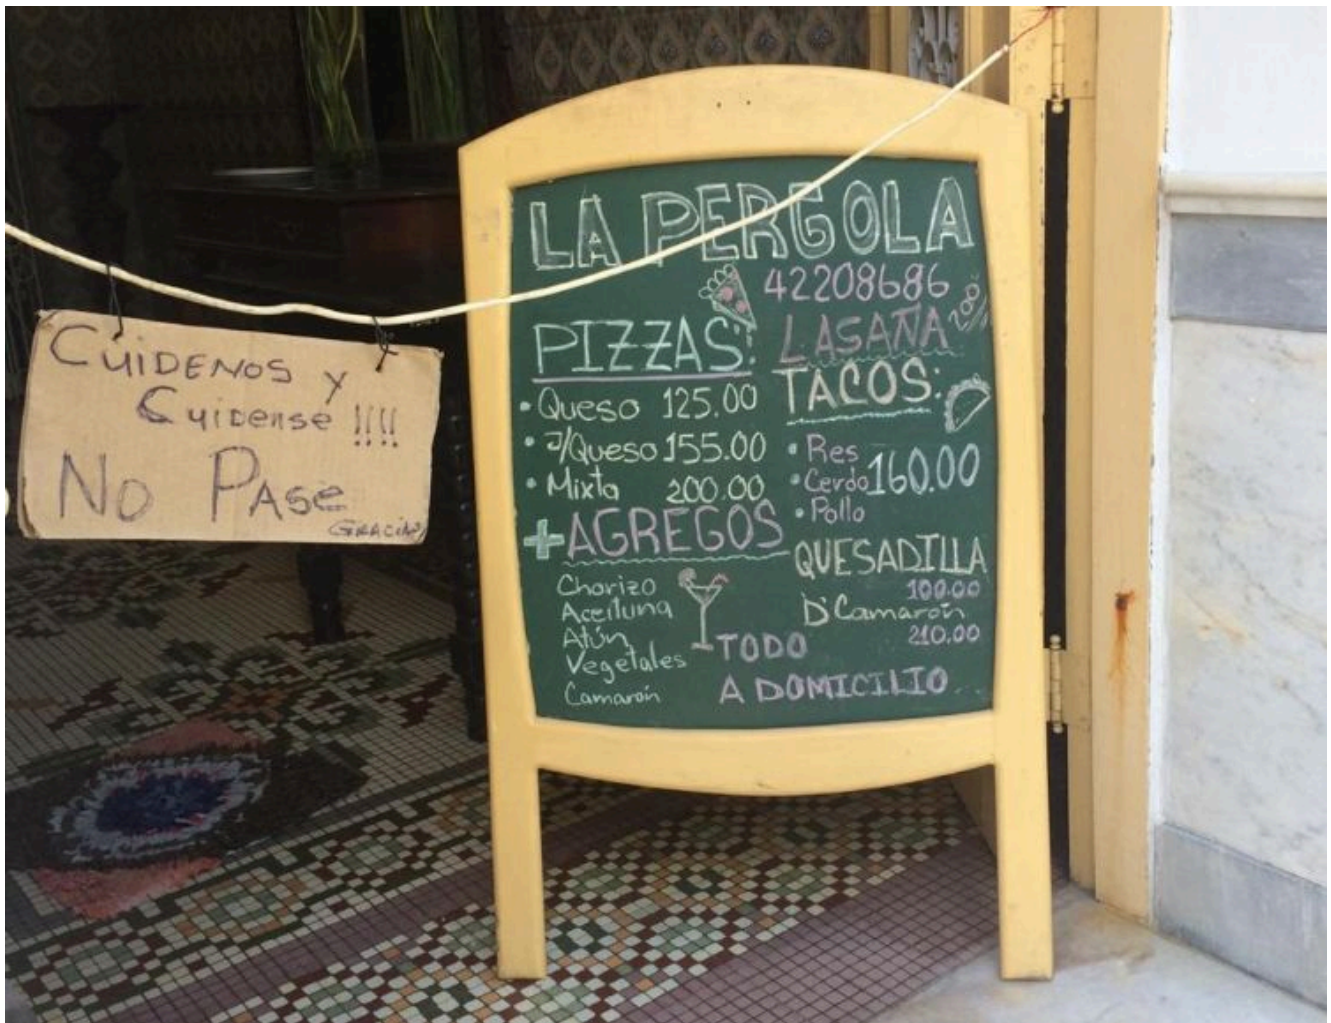 CUIDENOS y
Cuidense !!!!
No PAse
GRACIAS
LA PERGOLA
42208686
PIZZAS:
• Queso 125.00
• J/Queso 155.00
• Mixta 200.00
+ AGREGOS
Chorizo
Aceituna
Atún
Vegetales
Camarón
LASAÑA
TACOS:
• Res
• Cerdo 160.00
• Pollo
QUESADILLA
100.00
D' Camarón
210.00
TODO
A DOMICILIO